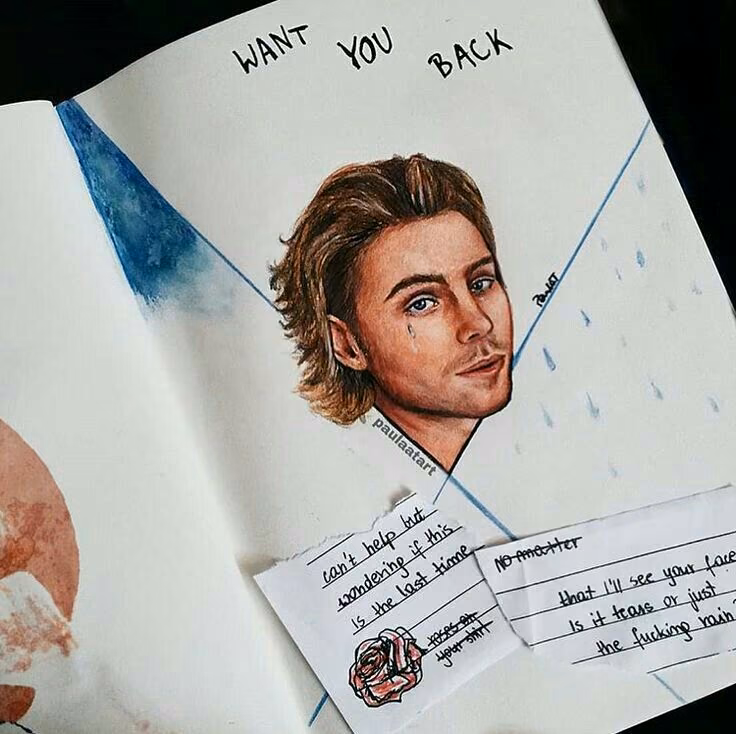 WANT YOU BACK
PAULAT
paulaatart
can't help but
wondering if this
is the last time
roses on
your shirt
No matter
that I'll see your face
Is it tears or just
the fucking rain?